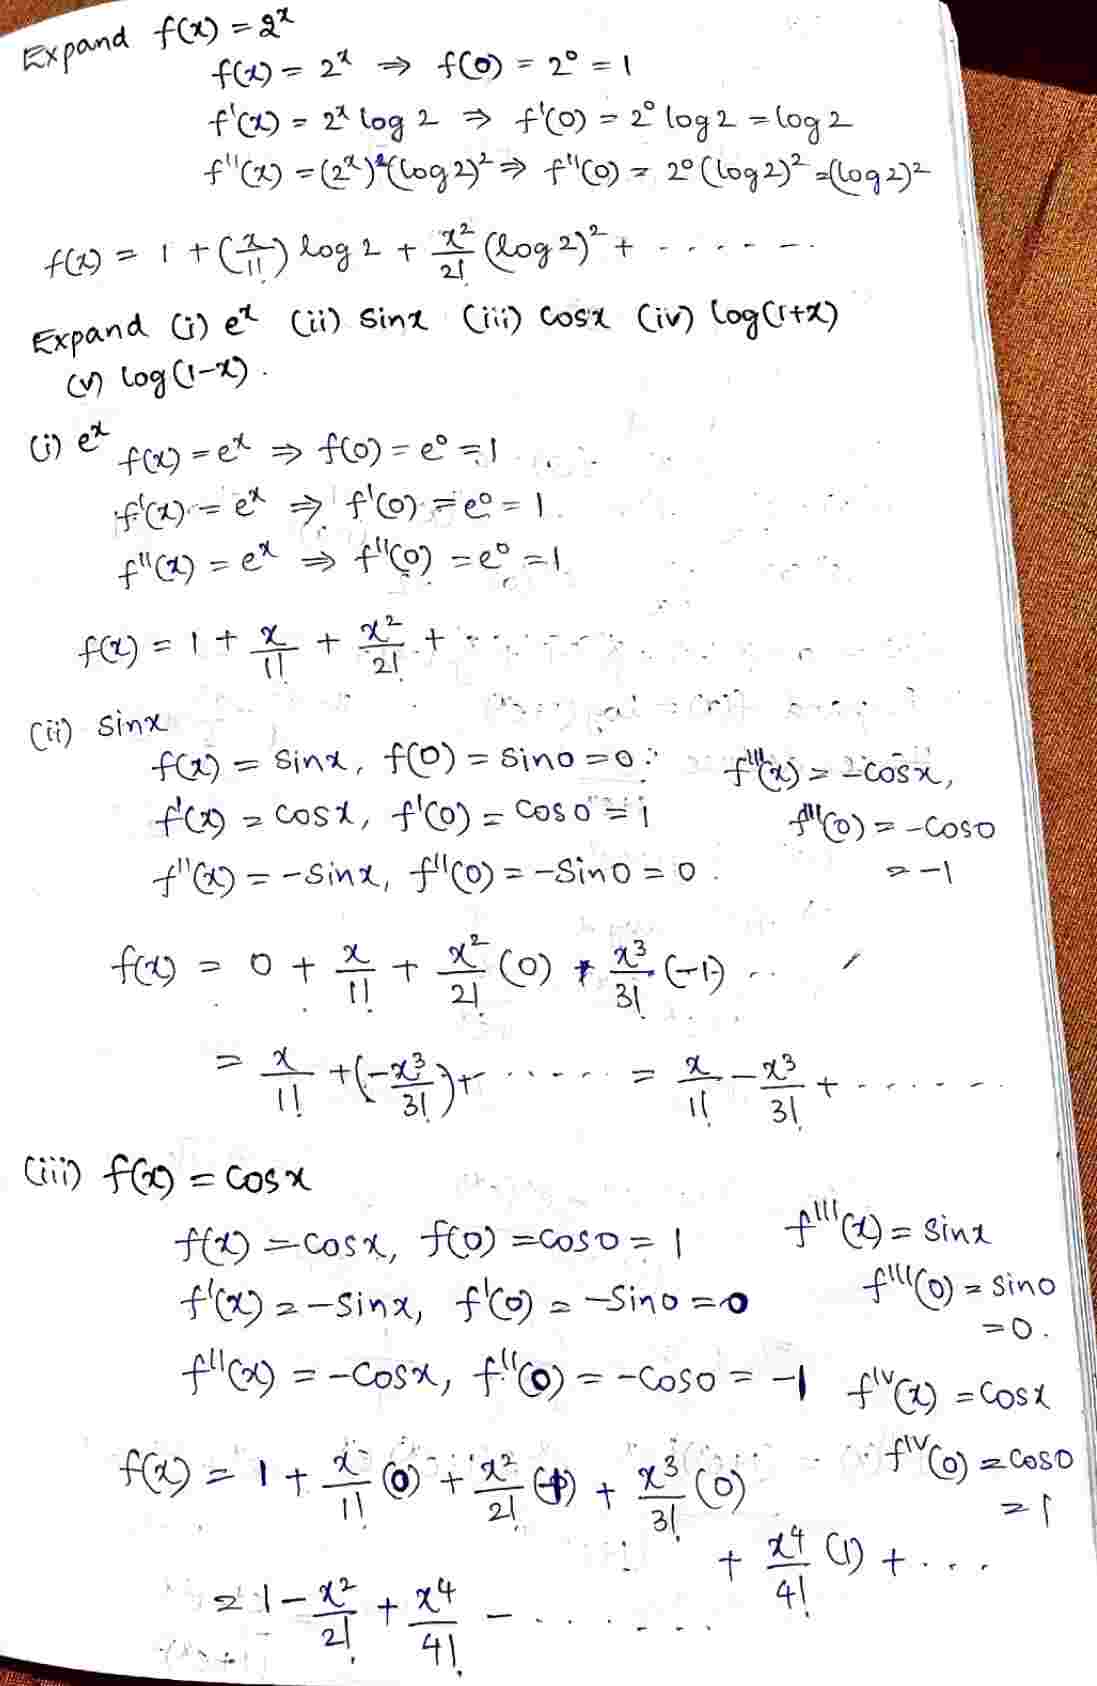 Expand f(x) = 2ˣ
f(x) = 2ˣ ⇒ f(0) = 2⁰ = 1
f'(x) = 2ˣ log 2 ⇒ f'(0) = 2⁰ log 2 = log 2
f''(x) = (2ˣ)(log 2)² ⇒ f''(0) = 2⁰ (log 2)² = (log 2)²
f(x) = 1 + (x/1!) log 2 + x²/2! (log 2)² + .......
Expand (i) eˣ (ii) sinx (iii) cosx (iv) log(1+x)
(v) log(1-x).
(i) eˣ
f(x) = eˣ ⇒ f(0) = e⁰ = 1
f'(x) = eˣ ⇒ f'(0) = e⁰ = 1
f''(x) = eˣ ⇒ f''(0) = e⁰ = 1
f(x) = 1 + x/1! + x²/2! + .......
(ii) sinx
f(x) = sinx, f(0) = sin0 = 0
f'''(x) = -cosx,
f'(x) = cosx, f'(0) = cos0 = 1
f'''(0) = -cos0
f''(x) = -sinx, f''(0) = -sin0 = 0.
= -1
f(x) = 0 + x/1! + x²/2! (0) + x³/3! (-1) ..
= x/1! + (-x³/3!) + ..... = x/1! - x³/3! + ......
(iii) f(x) = cosx
f(x) = cosx, f(0) = cos0 = 1
f'''(x) = sinx
f'(x) = -sinx, f'(0) = -sin0 = 0
f'''(0) = sin0
= 0.
f''(x) = -cosx, f''(0) = -cos0 = -1
fⁱᵛ(x) = cosx
fⁱᵛ(0) = cos0
= 1
f(x) = 1 + x/1! (0) + x²/2! (-1) + x³/3! (0)
+ x⁴/4! (1) + ...
= 1 - x²/2! + x⁴/4! - .......